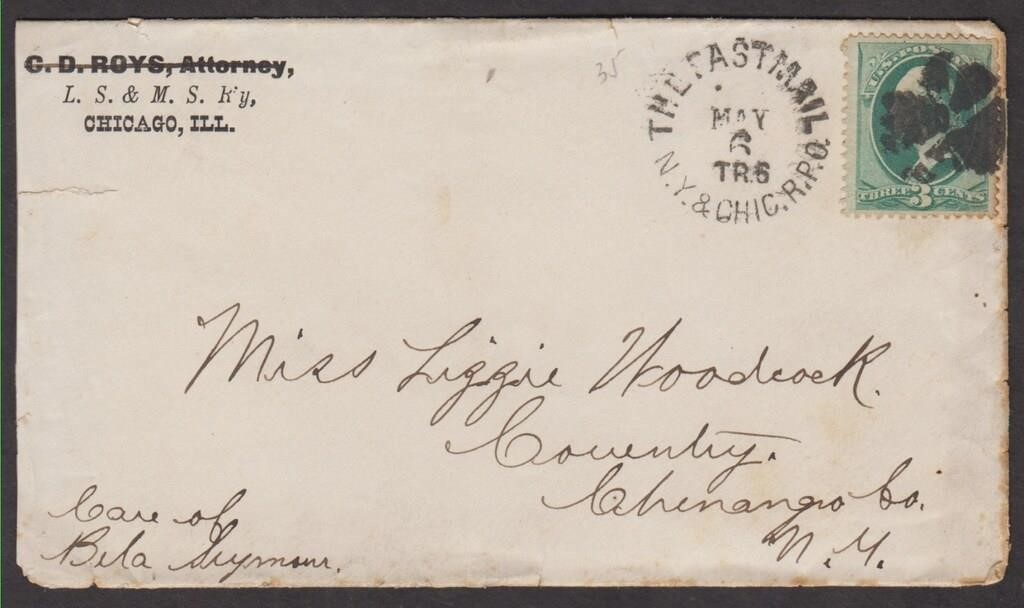 C. D. ROYS, Attorney,
L. S. & M. S. R'y,
CHICAGO, ILL.
35
THE FAST MAIL
MAY
6
TR6
N.Y. & CHIC. R.P.O.
U.S. POS
THREE 3 CENTS
Miss Lizzie Woodcock.
Coventry.
Chenango Co.
N. Y.
Care of
Bela Seymour.